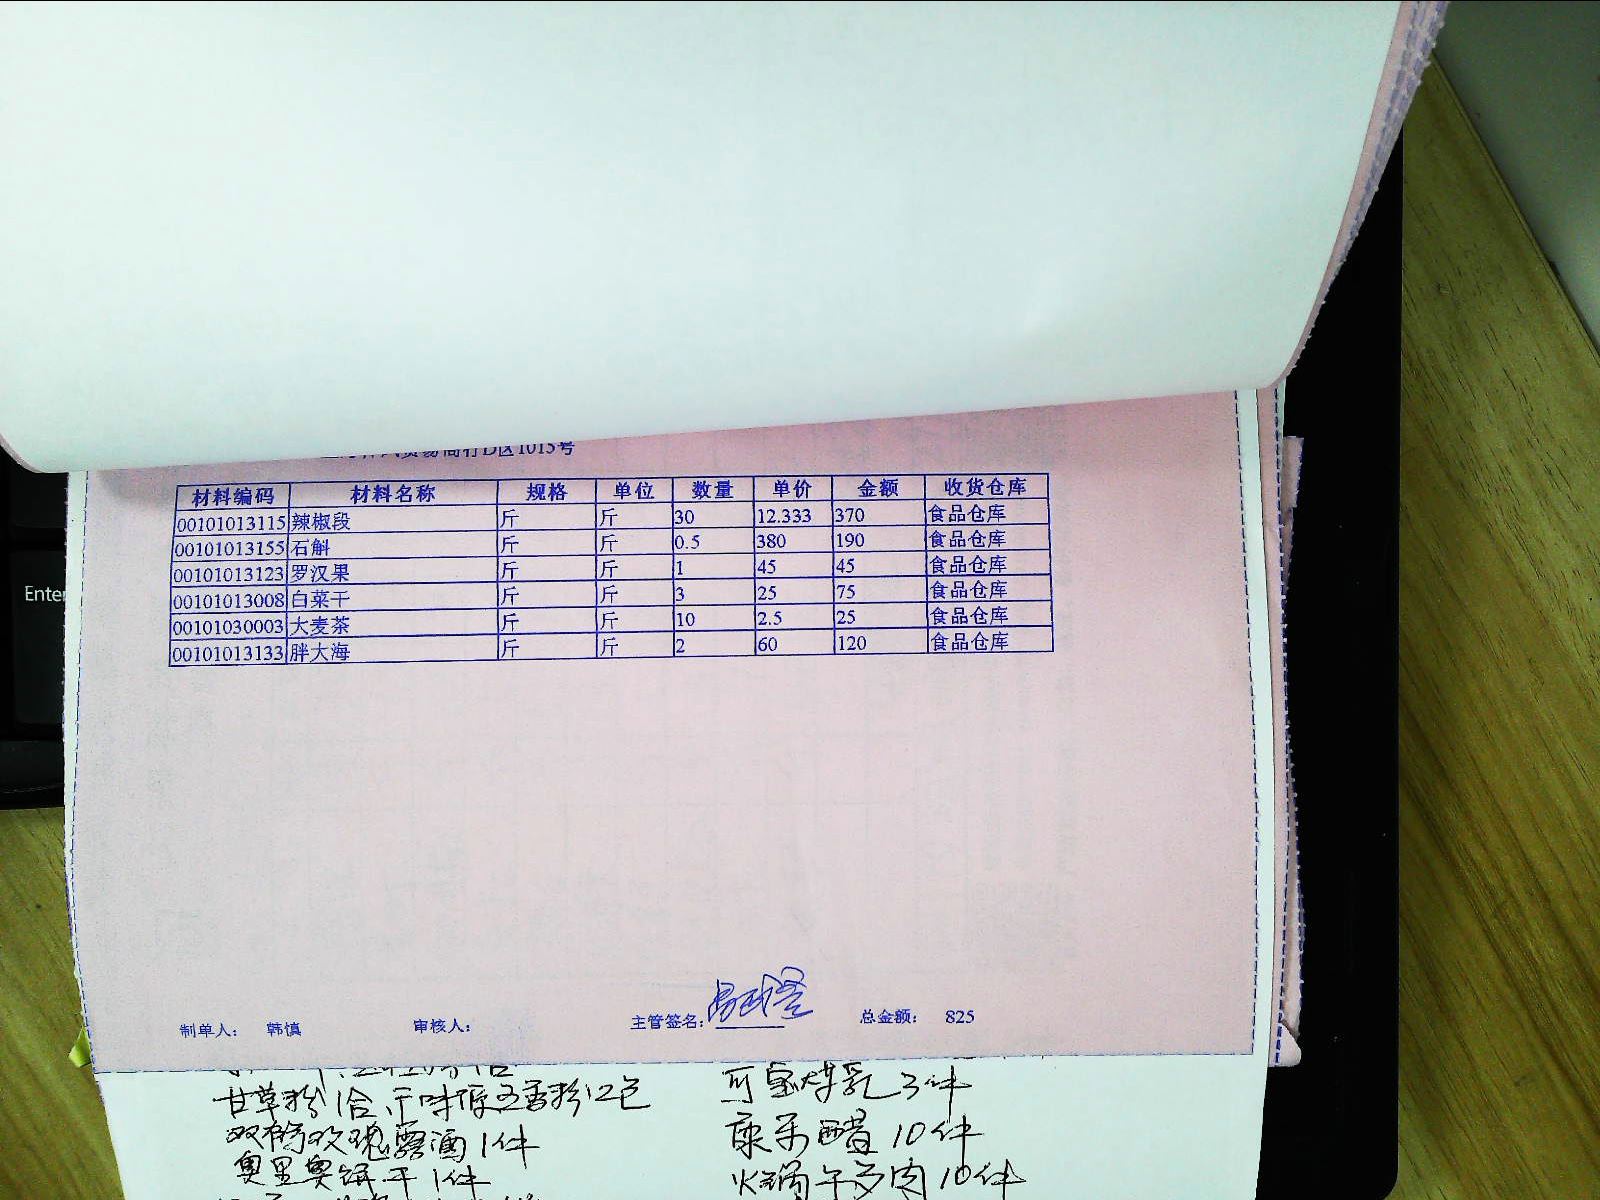 D区1015号
材料编码 材料名称 规格 单位 数量 单价 金额 收货仓库
00101013115 辣椒段 斤 斤 30 12.333 370 食品仓库
00101013155 石斛 斤 斤 0.5 380 190 食品仓库
00101013123 罗汉果 斤 斤 1 45 45 食品仓库
00101013008 白菜干 斤 斤 3 25 75 食品仓库
00101030003 大麦茶 斤 斤 10 2.5 25 食品仓库
00101013133 胖大海 斤 斤 2 60 120 食品仓库
制单人： 韩慎 审核人： 主管签名： 总金额： 825
Enter
甘草粉1合 五香粉12包 3件
玫瑰露酒1件 醋10件
奥里奥饼干1件 火锅午多肉10件